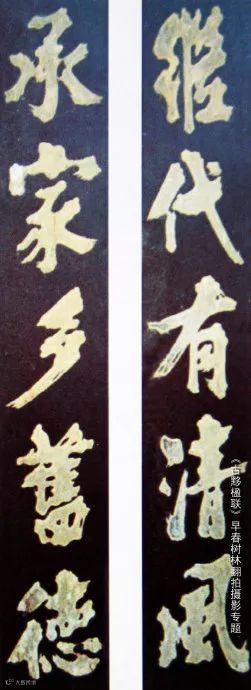 繼代有清風
承家多舊德
《古黟楹联》早春树林翻拍摄影专题